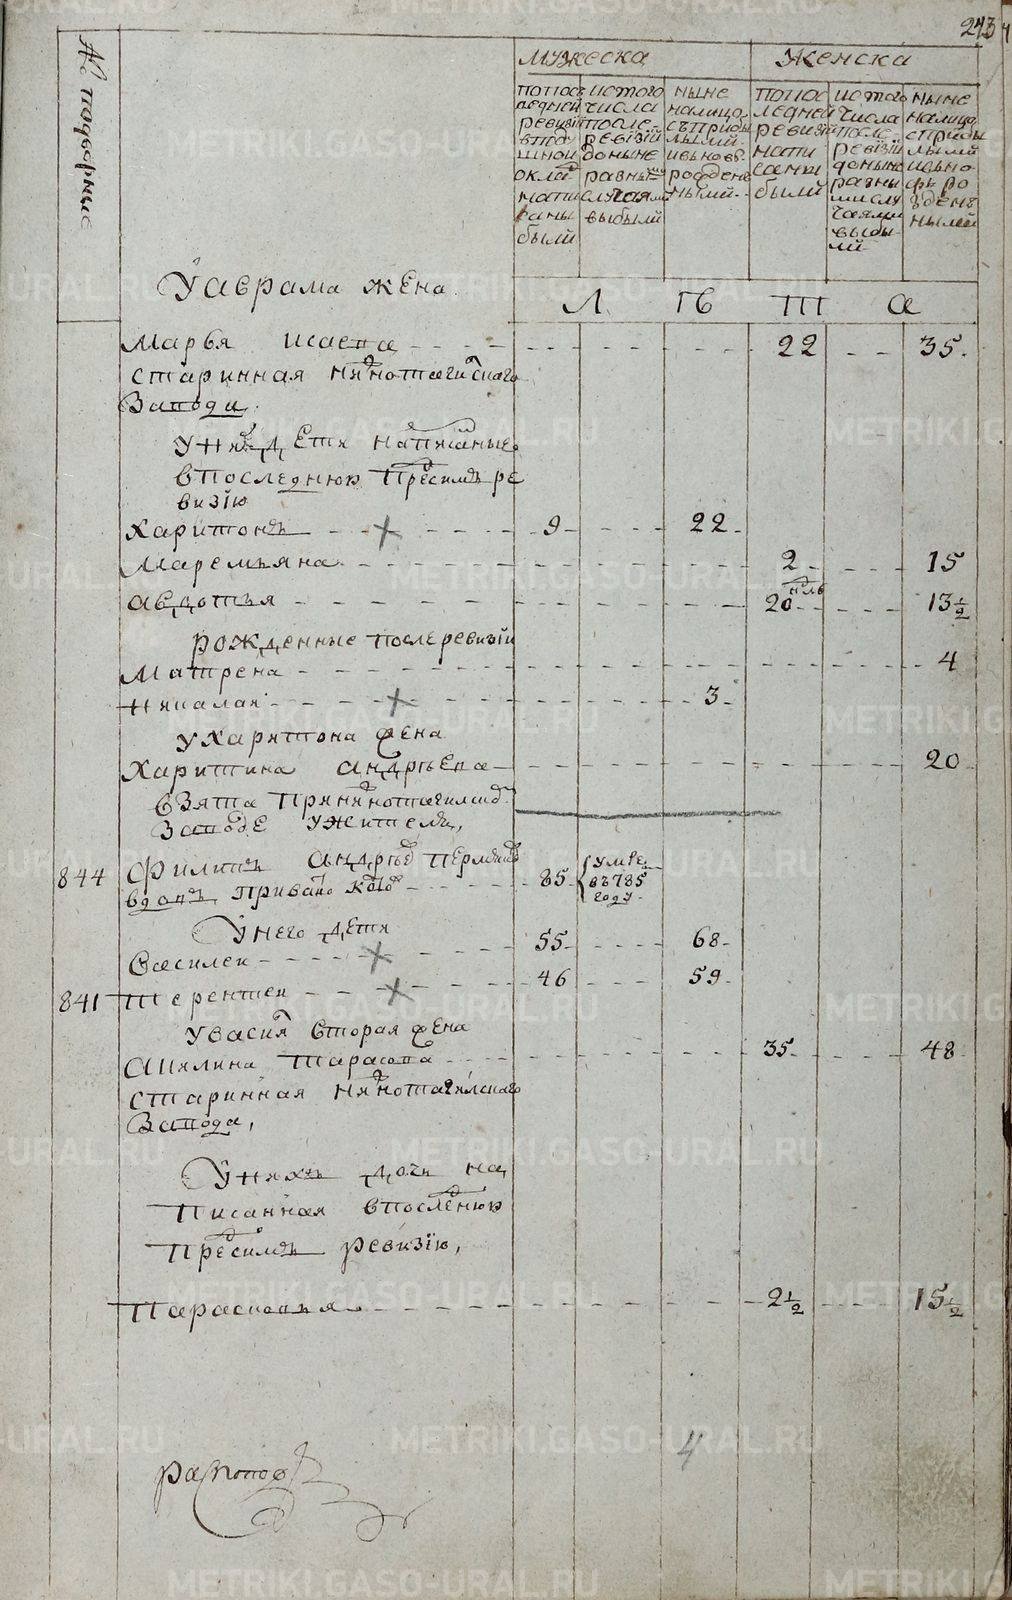 243
№ подворные
Мужеска
Женска
по послѣдней ревизіи в подушной окладъ написаны были
ис того числа после ревизіи доныне разными случаями выбыли
ныне налицо с прибылыми и вновь рожденными
по последней ревизіи написаны были
ис того числа после ревизіи доныне разными случаями выбыли
ныне налицо с прибылыми и вновь рожденными
У аврама жена
Л ТЬ Т А
Марья исаева 22 35
старинная нижнотагилского
Завода.
у них дети написаные
в последнюю пред симъ ре
визію
Харитонъ 9 22
Маремьяна 2 15
авдотья 20 нѣль 13½
рожденные после ревизіи
Матрена 4
Николаи 3
у харитона жена
Харитина андрѣева 20
взята при нижнотагилскомъ
Заводе у жителя,
844 Филипъ андрѣевъ
вдовъ, 85 умре в ъ785 году
У него дети
Василеи 55 68
841 Терентеи 46 59
у василья вторая жена
Акилина Тарасова 35 48
старинная нижнотагилского
Завода,
У нихъ дочь на
писанная в последнюю
пред симъ ревизію,
Парасковья 2½ 15½
4
METRIKI.GASO-URAL.RU